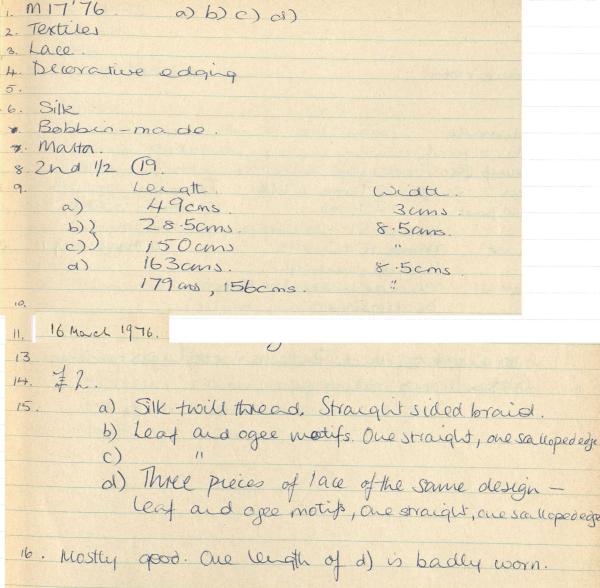 1. M17'76 a) b) c) d)
2. Textiles
3. Lace.
4. Decorative edging
5.
6. Silk
Bobbin-made.
7. Malta.
8. 2nd 1/2 19.
9. Length. Width.
a) 49cms. 3cms.
b) } 28.5cms. 8.5cms.
c) } 150cms "
d) 163cms. 8.5cms.
179cms, 156cms. "
10.
11. 16 March 1976.
13
14. £2.
15. a) Silk twill thread. Straight sided braid.
b) Leaf and ogee motifs. One straight, one scalloped edge
c) "
d) Three pieces of lace of the same design –
Leaf and ogee motifs, One straight, one scalloped edge
16. Mostly good. One length of d) is badly worn.